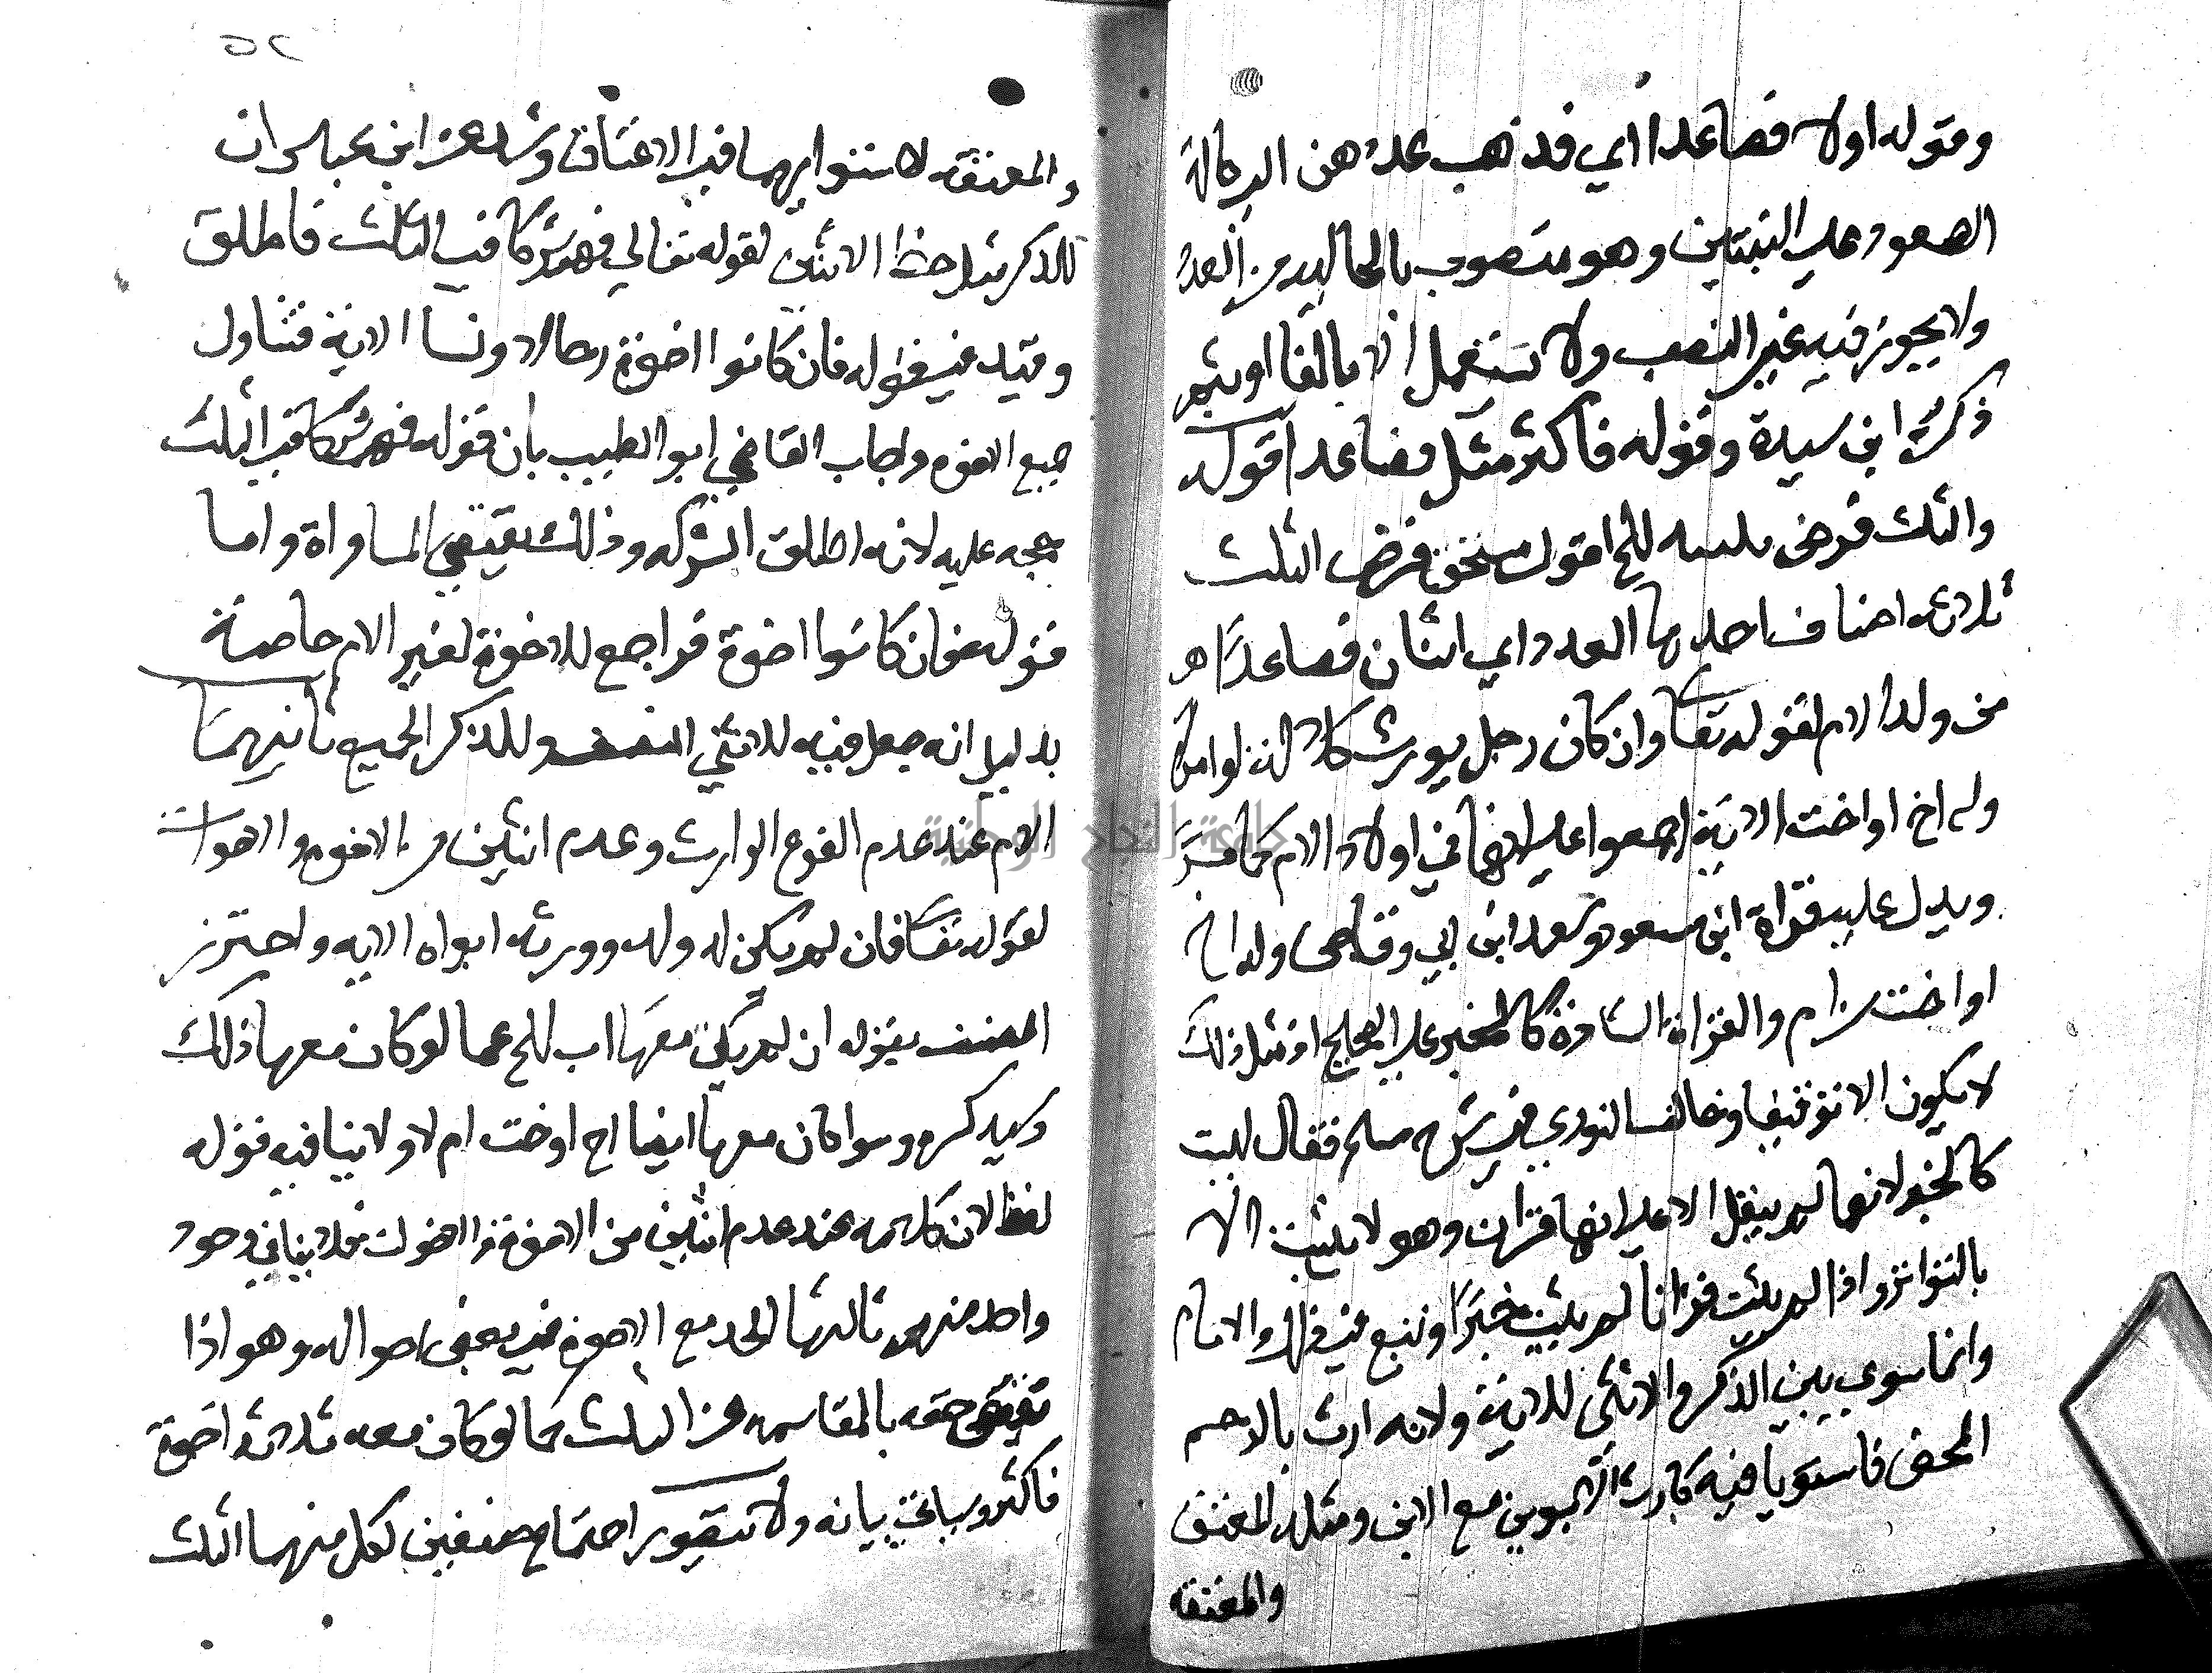 وقوله اولا فصاعدا اي فذهب عدد هن الدكالة
الصعود على البنتين وهو منصوب بالحالية من العدد
ولا يجوز فيه غير النصب ولا تستعمل الا بالفا او بثم
ذكره ابن سيدة وقوله فاكثر مثل فصاعدا قوله
والثلث فرض الخ اقول مستحق فرض الثلث
ثلاثة اصناف احدها العدد اي اثنان فصاعدًا
من ولد الام لقوله تعا وان كان رجل يورث كلالة او امراة
وله اخ او اخت الاية اجمعوا على انها في اولاد الام كما مرَّ
ويدل عليه قراة ابن مسعود وسعد ابن ابي وقاص وله اخ
او اخت من ام والقراة الشاذة كالخبر على الصحيح اذ مثل ذلك
لا يكون الا توقيفا وخالف النووي في شرح مسلم فقال ليست
كالخبر لانها لم ينقل الا على انها قران وهو لا يثبت الا
بالتواتر واذا لم يثبت قرانا لم يثبت خبرًا وتبع في ذلك الامام
وانما سوي بين الذكر والانثى للاية ولانه ارث بالرحم
المحض فاستويا فيه كارث الابوين مع الابن ومثله المعتق
والمعتقه
٥٢
والمعتقه لاستوايهما في الاعتاق وشذ عن ابن عباس ان
للذكر مثل حظ الانثيين لقوله تعالي فهم شركا في الثلث فاطلق
وقيد في قوله فان كانوا اخوة رجالا ونسا الاية فتناول
جميع الاخوة واجاب القاضي ابو الطيب بان قوله فهم شركا في الثلث
حجه عليه لانه اطلق الشركه وذلك يقتضي المساواة واما
قوله فان كانوا اخوة فراجع للاخوة لغير الام خاصة
بدليل انه جعل فيه للانثي النصف وللذكر الجميع ثانيهما
الام عند عدم الفرع الوارث وعدم اثنين من الاخوة والاخوات
لقوله تعا فان لم يكن له ولد وورثه ابواه الاية واحترز
المصنف بقوله ان لم يكن معها اب الخ عما لو كان معها ذلك
وسيذكره وسوا كان معها ايضا اخ او اخت ام لا ولا ينافيه قوله
لفظا لان كلامه عند عدم اثنين من الاخوة والاخوات فلا ينافي وجود
واحد منهم ثالثها الجد مع الاخوة في بعض احواله وهو اذا
نقص حقه بالمقاسمه عن الثلث كما لو كان معه ثلاثة اخوة
فاكثر وسياتي بيانه ولا يتصور اجتماع صنفين لكل منهما الثلث